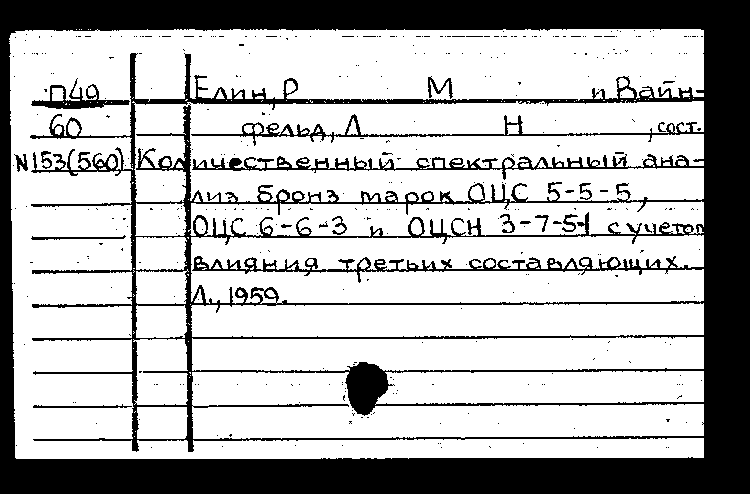 П49 Елин, Р М и Вайн-
60 фельд, Л Н , сост.
N153(560) Количественный спектральный ана-
лиз бронз марок ОЦС 5-5-5,
ОЦС 6-6-3 и ОЦСН 3-7-5-1 с учетом
влияния третьих составляющих.
Л., 1959.